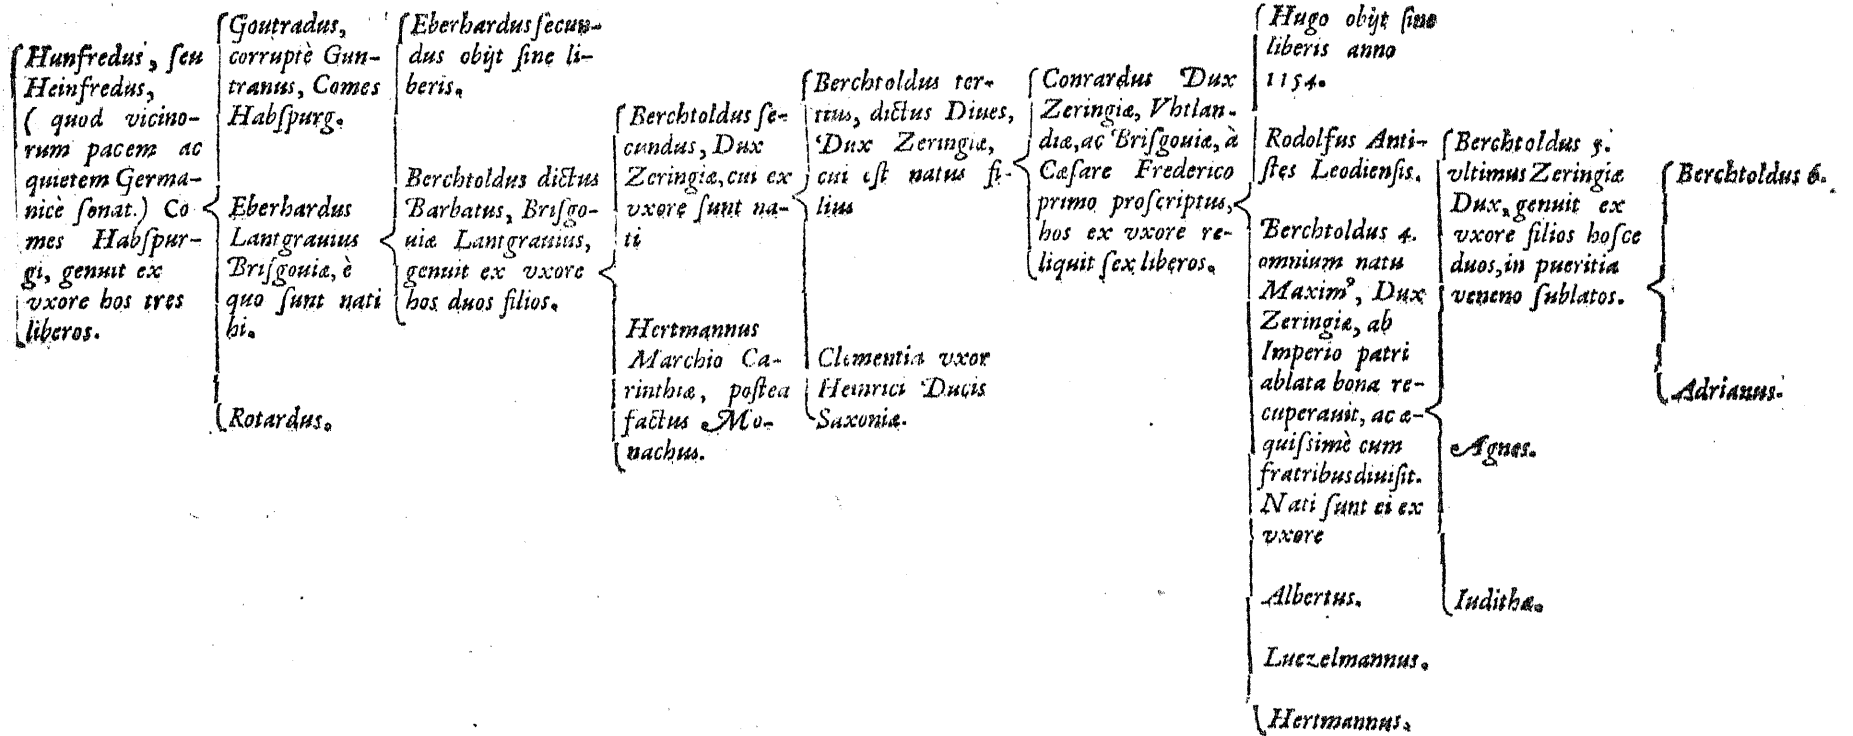 Hunfredus, ſeu
Heinfredus,
( quod vicino-
rum pacem ac
quietem Germa-
nicè ſonat.) Co
mes Habſpur-
gi, genuit ex
vxore hos tres
liberos.
Goutradus,
corruptè Gun-
tranus, Comes
Habſpurg.
Eberhardus
Lantgrauius
Briſgouiæ, è
quo ſunt nati
hi.
Rotardus.
Eberhardus ſecun-
dus obijt ſine li-
beris.
Berchtoldus dictus
Barbatus, Briſgo-
uiæ Lantgrauius,
genuit ex vxore
hos duos filios.
Berchtoldus ſe-
cundus, Dux
Zeringiæ, cui ex
vxore ſunt na-
ti
Hertmannus
Marchio Ca-
rinthiæ, poſtea
factus Mo-
nachus.
Berchtoldus ter-
tius, dictus Diues,
Dux Zeringiæ,
cui eſt natus fi-
lius
Clementia vxor
Heinrici Ducis
Saxoniæ.
Conrardus Dux
Zeringiæ, Vhtlan-
diæ, ac Briſgouiæ, à
Cæſare Frederico
primo proſcriptus,
hos ex vxore re-
liquit ſex liberos.
Hugo obijt ſine
liberis anno
1154.
Rodolfus Anti-
ſtes Leodienſis.
Berchtoldus 4.
omnium natu
Maximꝰ, Dux
Zeringiæ, ab
Imperio patri
ablata bona re-
cuperauit, ac æ-
quiſſimè cum
fratribus diuiſit.
Nati ſunt ei ex
vxore
Albertus.
Luezelmannus.
Hertmannus.
Berchtoldus 5.
vltimus Zeringiæ
Dux, genuit ex
vxore filios hoſce
duos, in pueritia
veneno ſublatos.
Agnes.
Iudithæ.
Berchtoldus 6.
Adrianus.